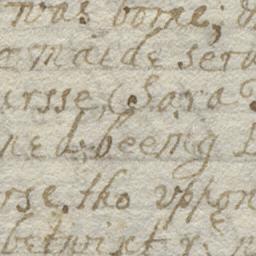 was borne;
a maide serv
ursse, (Sara
ned; beeing
rse tho uppon
betwixt y